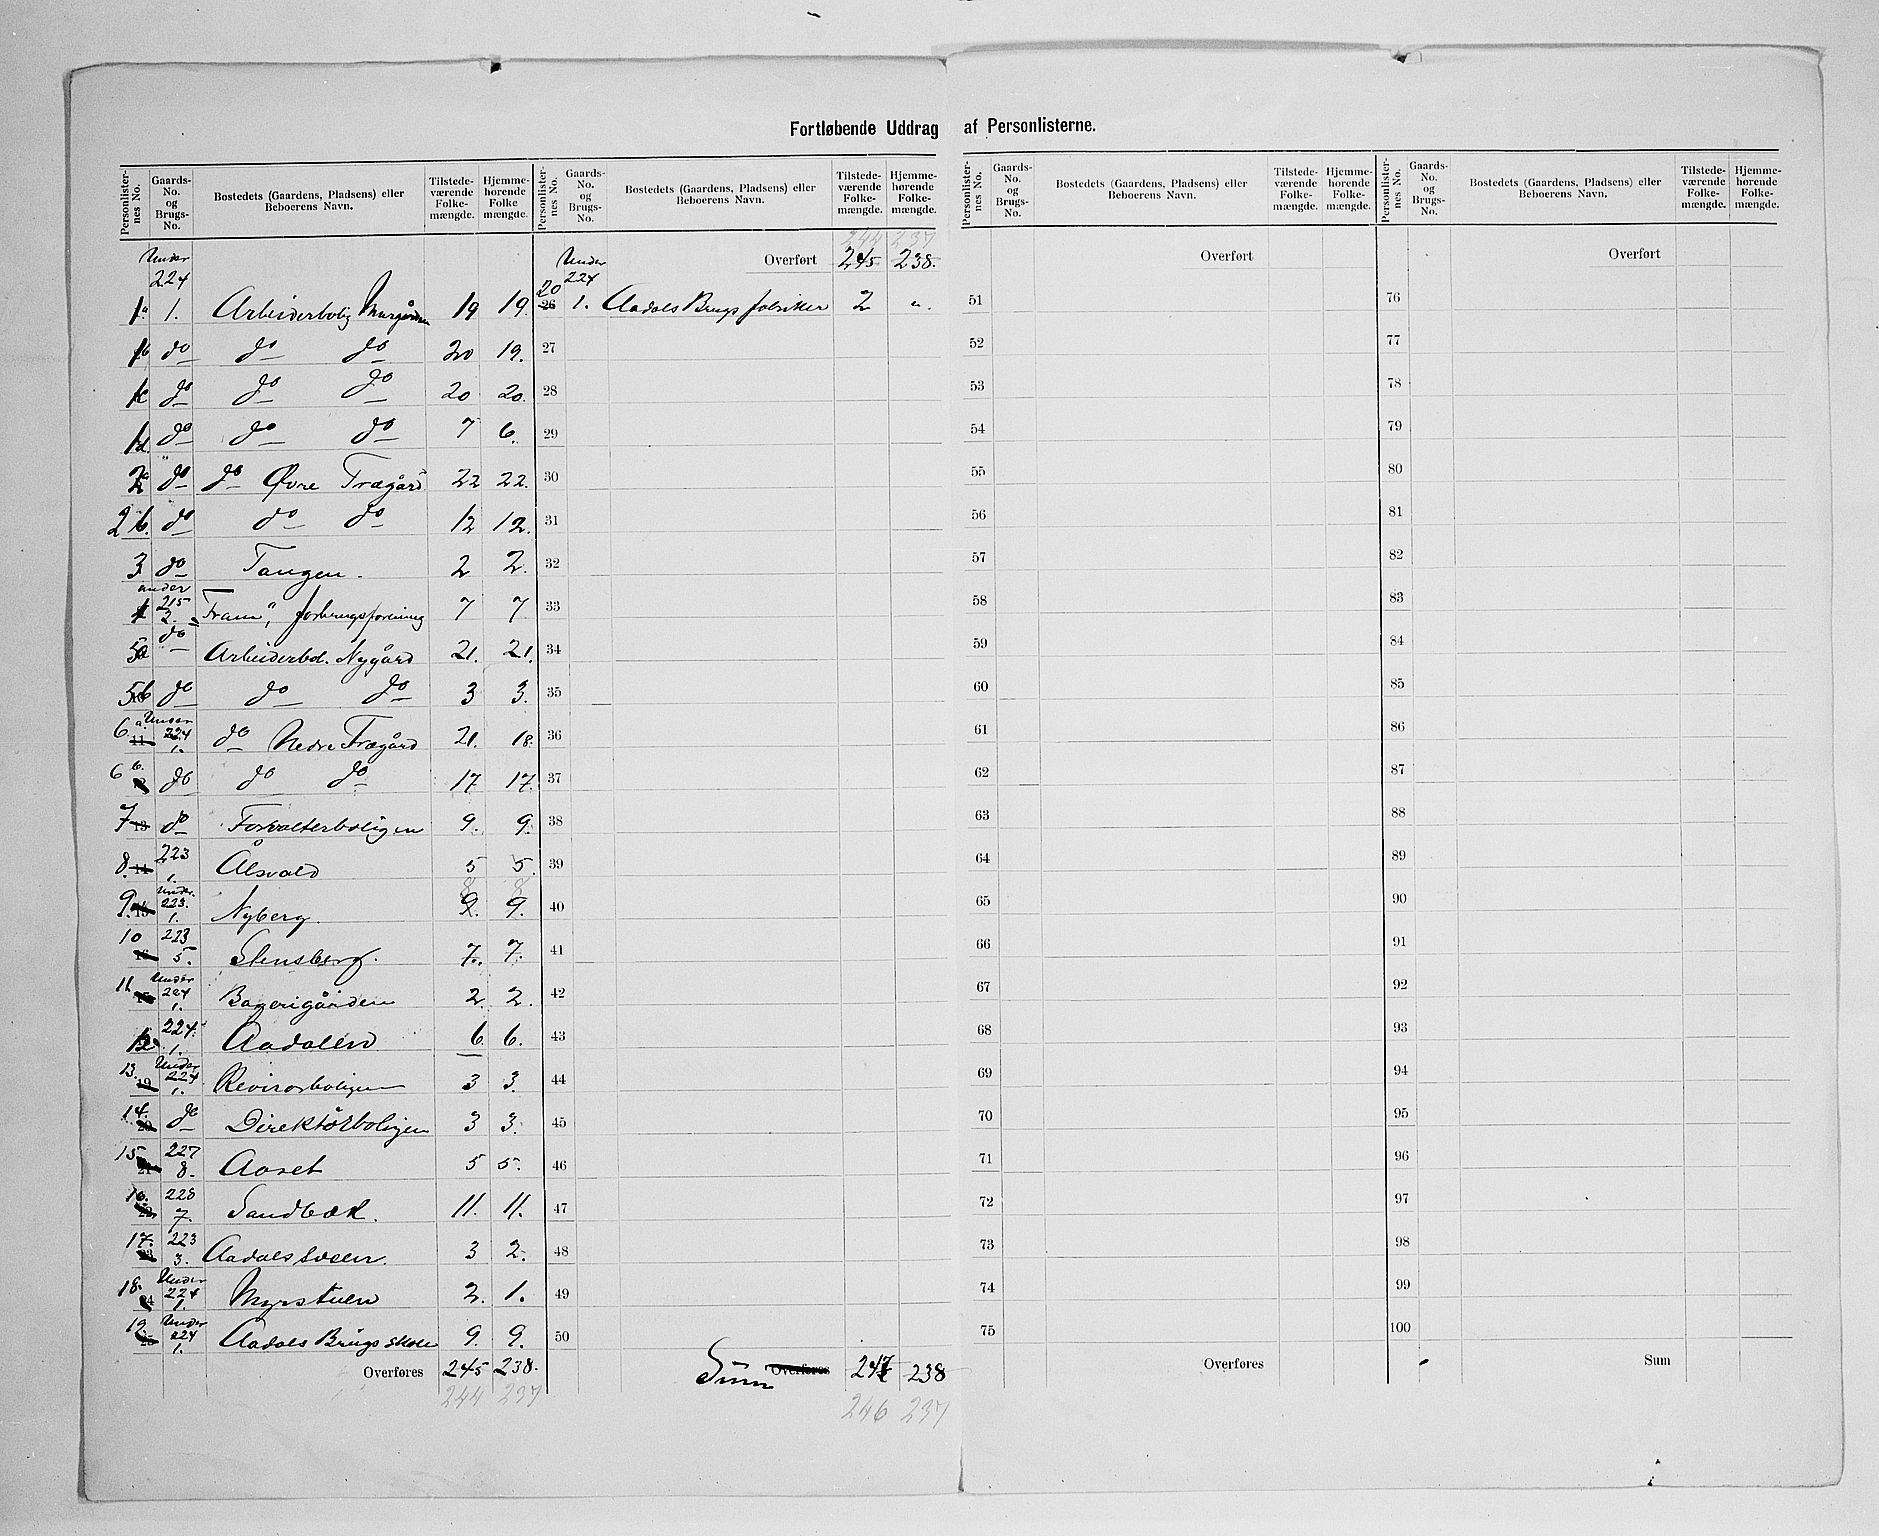 Fortløbende Uddrag af Personlisterne.
Personlisternes No. | Gaards-No. og Brugs-No. | Bostedets (Gaardens, Pladsens) eller Beboerens Navn. | Tilstedeværende Folkemængde. | Hjemmehørende Folkemængde.
Under 224
1a. 1. Arbeiderbolig Murgården 19 19.
1b do do do 20 19.
1c do do do 20 20.
1d. do do do 7 6.
2a do do Øvre Trægård 22 22.
2b. do do do 12 12.
3 do Tangen. 2 2.
4 under 215 2. "Fram", forbrugsforening 7 7
5a do Arbeiderbol. Nygård 21. 21.
5b do do do 3 3.
6a 11 Under 224 1. do Nedre Trægård 21. 18.
6b. do do do 17 17.
7 13 do Forvalterboligen 9. 9.
8. 14 223 1. Ålsvald 5 5.
8 8
9. 15 Under 223. 1. Nyberg. 9. 9.
10 223 5. Stensberg. 7. 7.
11. Under 224 1. Bagerigården 2. 2.
12. 224. 1. Aadalen 6. 6.
13. 19 Under 224 1. Revisorboligen 3 3.
14. 20 do Direktørboligen 3 3.
15 21 227 8. Aaset 5 5.
16. 22 228 7. Sandbæk. 11. 11.
17. 23 223 3. Aadalssveen. 3 2.
18. 24 Under 224 1. Myrstuen 2. 1.
19 25 Under 224 1. Aadals Brugs skole 9. 9.
Overføres 245 238.
244 237
Personlisternes No. | Gaards-No. og Brugs-No. | Bostedets (Gaardens, Pladsens) eller Beboerens Navn. | Tilstedeværende Folkemængde. | Hjemmehørende Folkemængde.
244 237
Under 224 Overført 245 238.
20 26 1. Aadals Brugs fabrikker 2 ".
27
28
29
30
31
32
33
34
35
36
37
38
39
40
41
42
43
44
45
46
47
48
49
50
Sum Overføres 247 238
246 237
Personlisternes No. | Gaards-No. og Brugs-No. | Bostedets (Gaardens, Pladsens) eller Beboerens Navn. | Tilstedeværende Folkemængde. | Hjemmehørende Folkemængde.
Overført
51
52
53
54
55
56
57
58
59
60
61
62
63
64
65
66
67
68
69
70
71
72
73
74
75
Overføres
Personlisternes No. | Gaards-No. og Brugs-No. | Bostedets (Gaardens, Pladsens) eller Beboerens Navn. | Tilstedeværende Folkemængde. | Hjemmehørende Folkemængde.
Overført
76
77
78
79
80
81
82
83
84
85
86
87
88
89
90
91
92
93
94
95
96
97
98
99
100
Sum